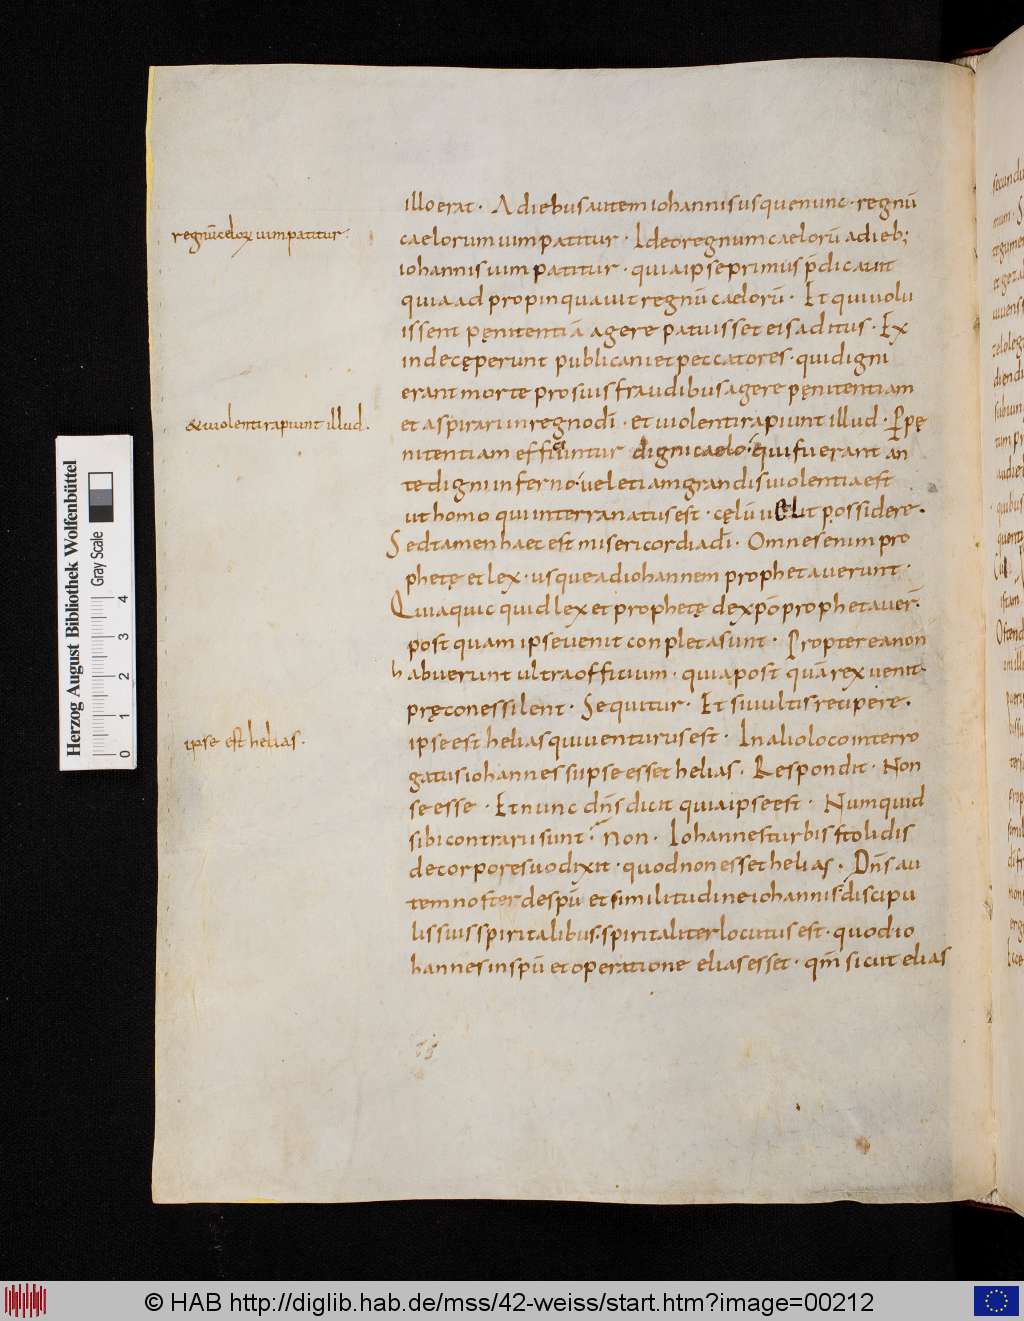 illo erat · A diebus autem iohannis usque nunc · regnū
regnū celoꝝ uim patitur ·
caelorum uim patitur · Ideo regnum caelorū a dieb;
iohannis uim patitur · quia ipse primus p̄dicauit
quia adpropinquauit regnū caelorū · Et qui uolu
issent pęnitentiā agere patuisset eis aditus · Ex
inde cęperunt publicani et peccatores · qui digni
erant morte pro suis fraudibus agere pęnitentiam
& uiolenti rapiunt illud ·
et aspirari in regno dī · et uiolenti rapiunt illud · P pę
nitentiam efficiuntur digni caelo · qui fuerant an
te digni inferno · uel etiam grandis uiolentia est
ut homo qui in terra natus est · cęlū uelit possidere ·
Sed tamen haec est misericordia dī · Omnes enim pro
phetę et lex · usque ad iohannem prophetauerunt ·
Quia quicquid lex et prophetę de xp̄o prophetauer̄ ·
postquam ipse uenit conpleta sunt · Propterea non
habuerunt ultra officium · quia postquā rex uenit
pręcones silent · Sequitur · Et si uultis recipere ·
ipse est helias ·
ipse est helias qui uenturus est · In alio loco interro
gatus iohannes si ipse esset helias · Respondit · Non
se esse · Et nunc dn̄s dicit quia ipse est · Numquid
sibi contrarii sunt · Non · Iohannes turbis stolidis
de corpore suo dixit · quod non esset helias · Dn̄s au
tem noster de spū et similitudine iohannis discipu
lis suis spiritalibus · spiritaliter locutus est · quod io
hannes in spū et operatione elias esset · qm̄ sicut elias
Herzog August Bibliothek Wolfenbüttel
Gray Scale
0 1 2 3 4
© HAB http://diglib.hab.de/mss/42-weiss/start.htm?image=00212